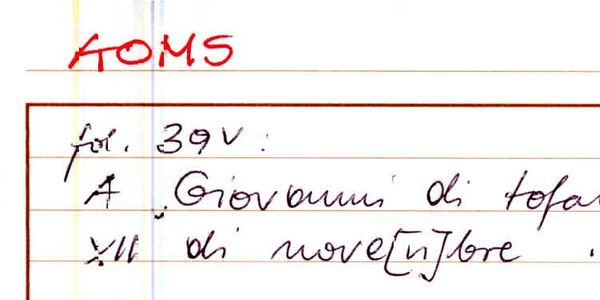 AOMS
fol. 39v:
A Giovanni di tofa
XII di nove[n]bre .